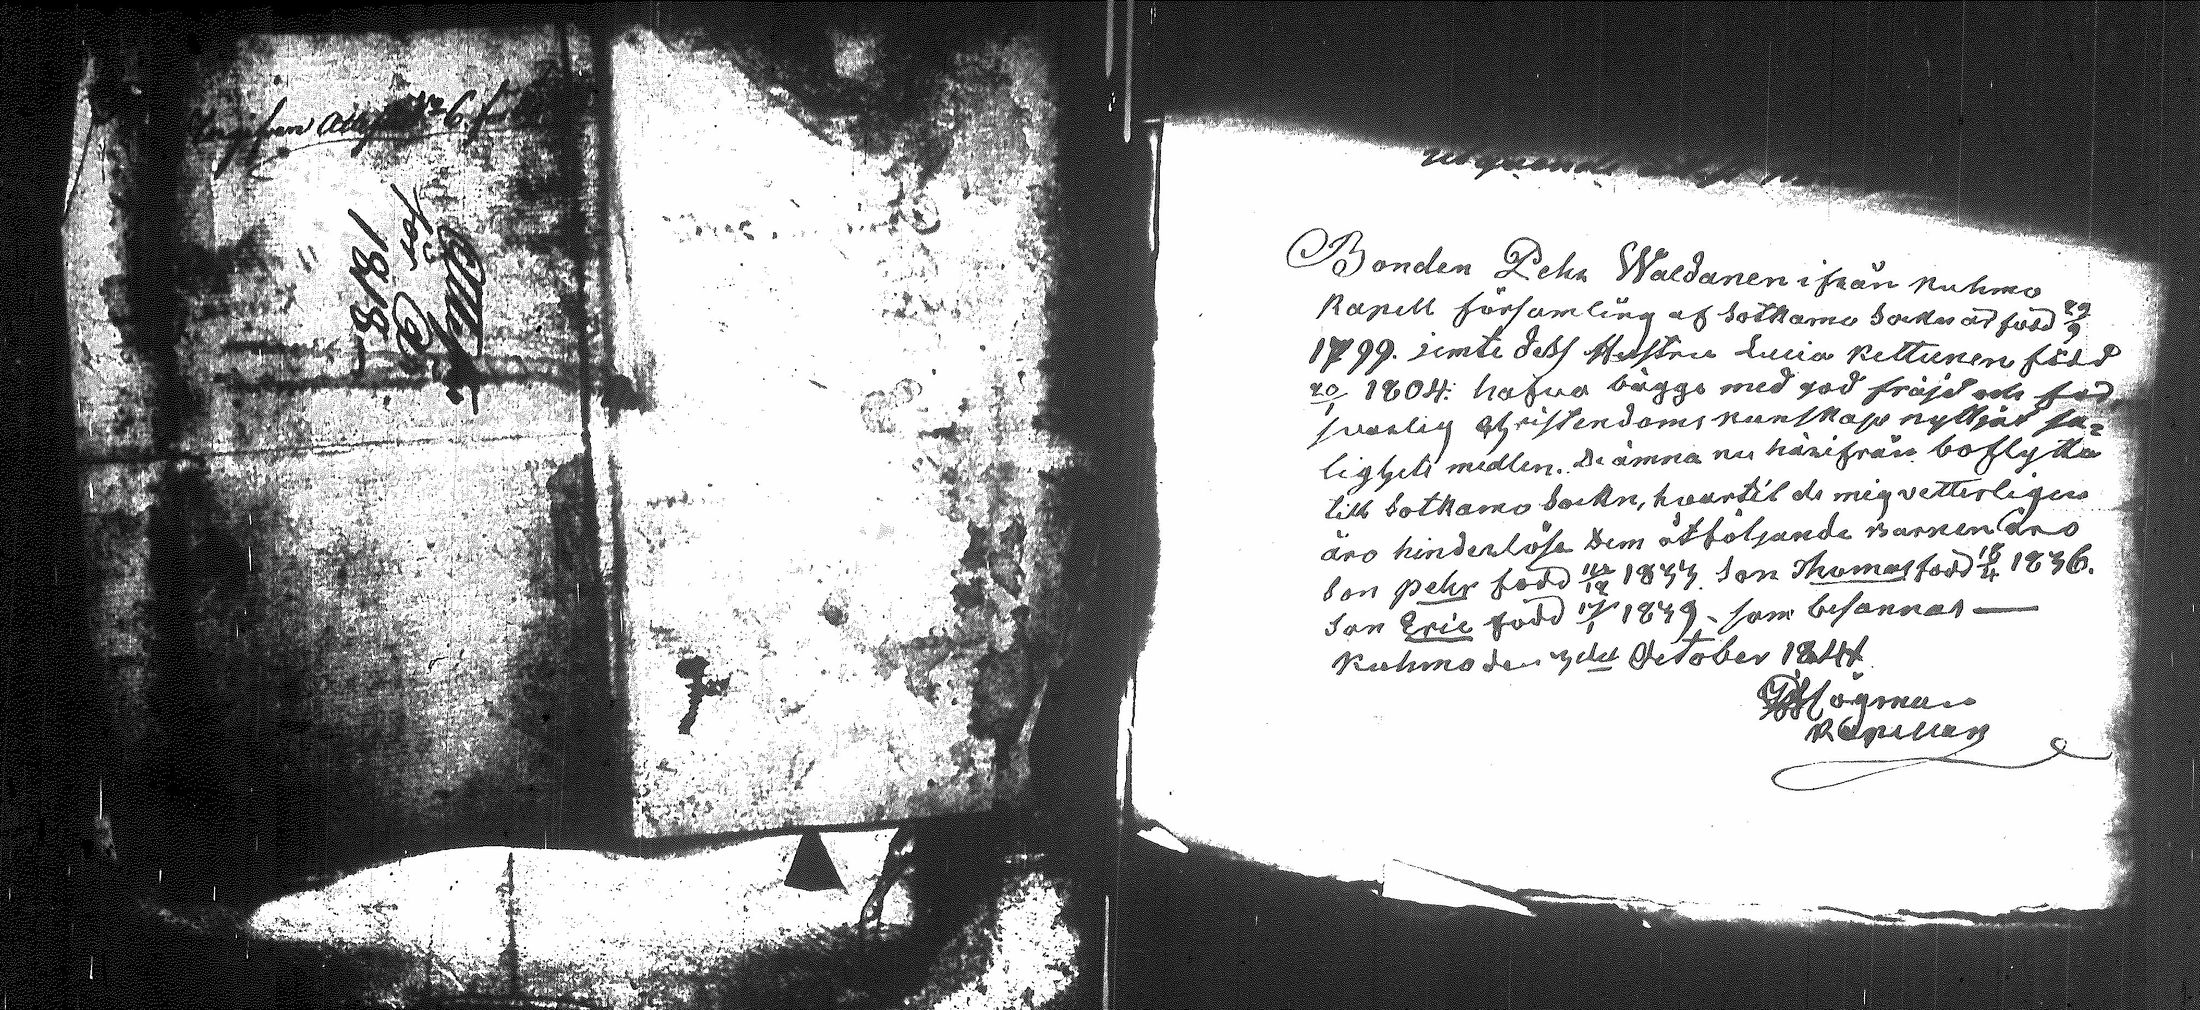 1818
för
utgående
Bonden Pehr Waldanen ifrån Kuhmo
Kapell församling af Sotkamo Sockn är född 29/9
1799. jemte dess Hustru Lucia Kettunen född
20/1 1804. hafva bägge med god fräjd och för
svarlig Christendoms kunskap nyttjat sa=
lighets medlen. De ämna nu härifrån boflytta
till Sotkamo Sockn, hvartil de mig vetterligen
äro hinderlösa Dem åtföljande Barnen äro
Son Pehr född 1833. Son Thomas född 18/4 1836.
Son Eric född 17/1 1839. som besannas —
Kuhmo den 3die October 1844
Högman
Kapellan